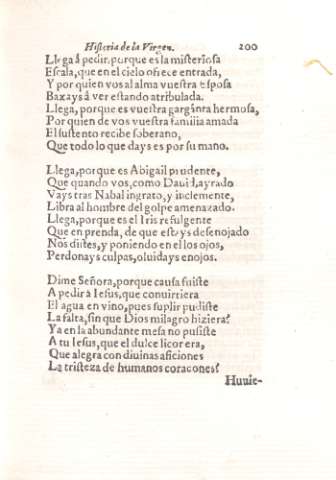 Historia de la Virgen. 200
Llega â pedir, porque es la misteriosa
Escala, que en el cielo ofrece entrada,
Y por quien vos al alma vuestra esposa
Baxays â ver estando atribulada.
Llega, porque es vuestra garganta hermosa,
Por quien de vos vuestra familia amada
El sustento recibe soberano,
Que todo lo que days es por su mano.

Llega, porque es Abigail prudente,
Que quando vos, como Dauid ayrado
Vays tras Nabal ingrato, y inclemente,
Libra al hombre del golpe amenazado.
Llega, porque es el Iris refulgente
Que en prenda, de que estays desenojado
Nos distes, y poniendo en ellos ojos,
Perdonays culpas, oluidays enojos.

Dime Señora, porque causa fuiste
A pedir â Iesus, que conuirtiera
El agua en vino, pues suplir pudiste
La falta, sin que Dios milagro hiziera?
Ya en la abundante mesa no pusiste
A tu Iesus, que el dulce licor era,
Que alegra con diuinas aficiones
La tristeza de humanos coraçones?
Huuie-